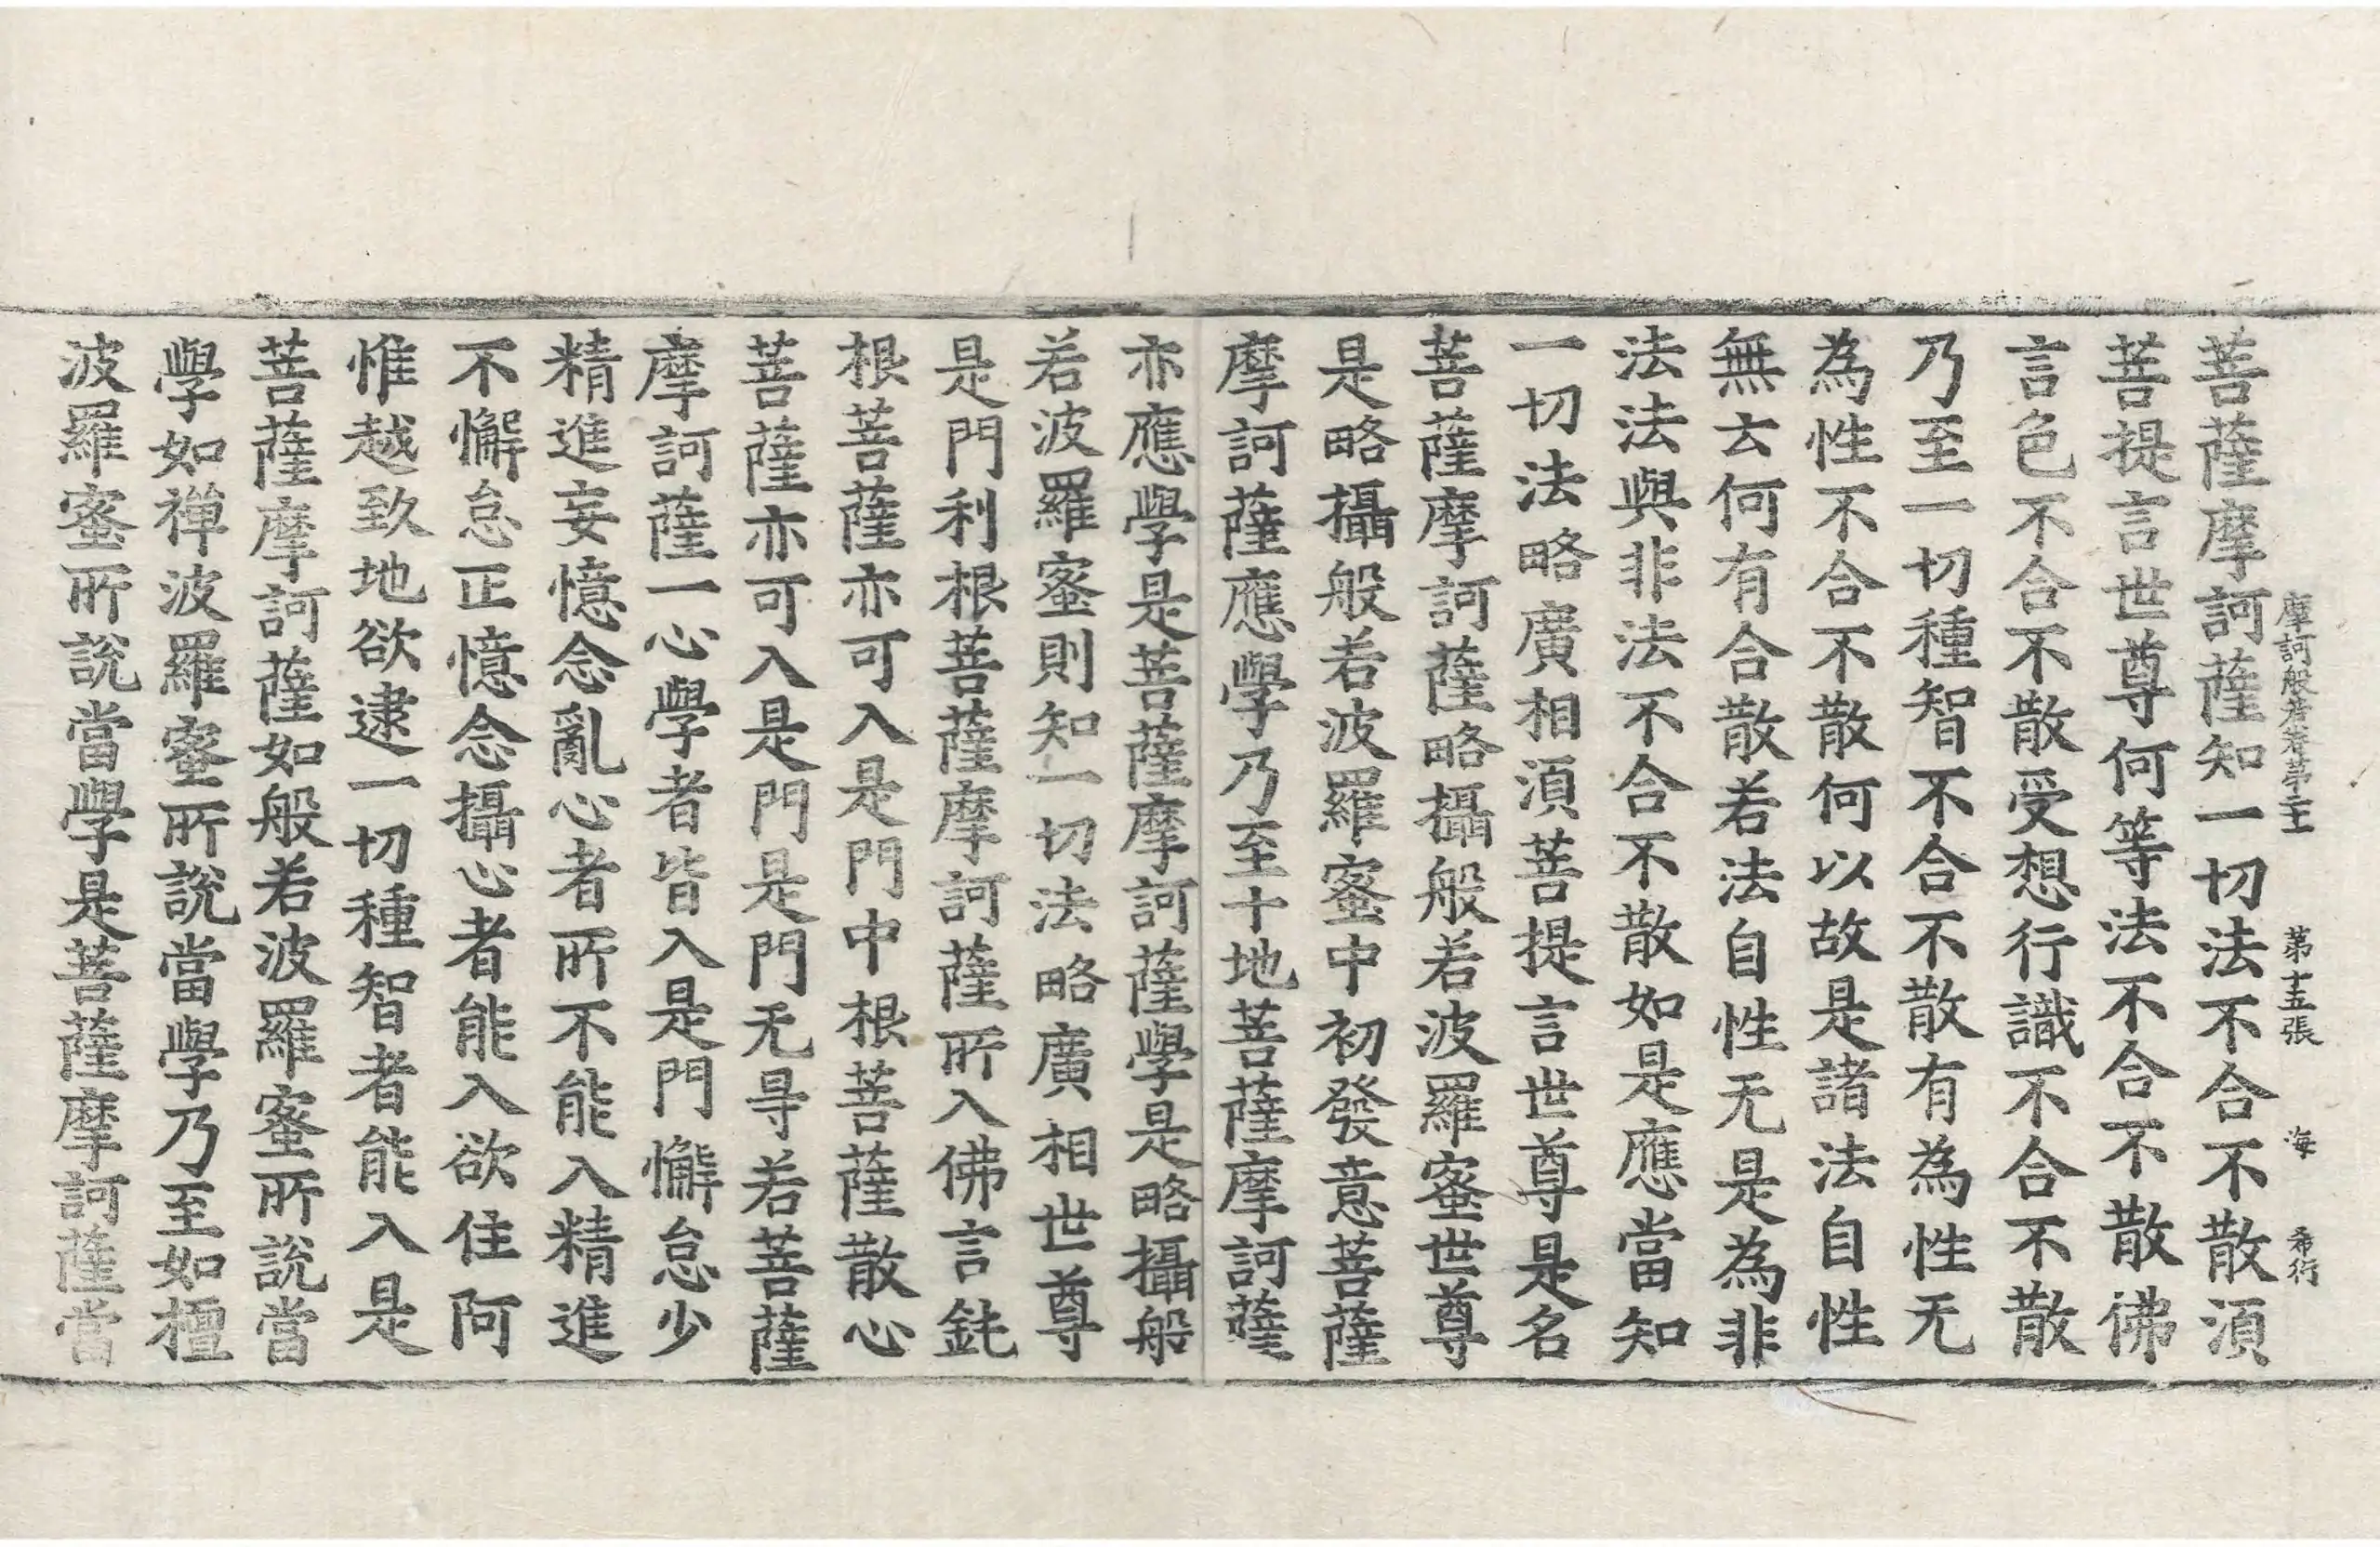 菩薩摩訶薩知一切法不合不散須
摩訶般若 第二十 第十五張 海 希行
菩提言世尊何等法不合不散佛
言色不合不散受想行識不合不散
乃至一切種智不合不散有為性无
為性不合不散何以故是諸法自性
無云何有合散若法自性无是為非
法法與非法不合不散如是應當知
一切法略廣相須菩提言世尊是名
菩薩摩訶薩略攝般若波羅蜜世尊
是略攝般若波羅蜜中初發意菩薩
摩訶薩應學乃至十地菩薩摩訶薩
亦應學是菩薩摩訶薩學是略攝般
若波羅蜜則知一切法略廣相世尊
是門利根菩薩摩訶薩所入佛言鈍
根菩薩亦可入是門中根菩薩散心
菩薩亦可入是門是門无㝵若菩薩
摩訶薩一心學者皆入是門懈怠少
精進妄憶念亂心者所不能入精進
不懈怠正憶念攝心者能入欲住阿
惟越致地欲逮一切種智者能入是
菩薩摩訶薩如般若波羅蜜所說當
學如禪波羅蜜所說當學乃至如檀
波羅蜜所說當學是菩薩摩訶薩當